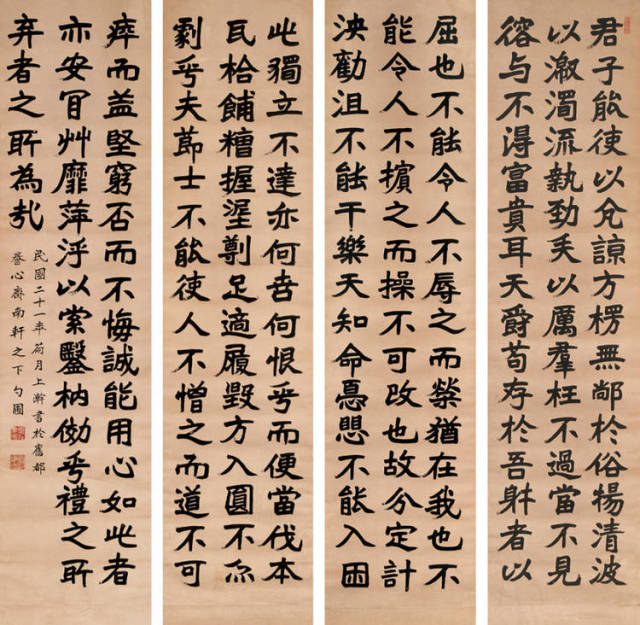 君子能使以兊諒方楞無鄗於俗揚清波
以激濁流執勁矢以厲羣枉不過當不見
容与不得富貴耳天爵苟存於吾躰者以
屈也不能令人不辱之而榮猶在我也不
能令人不擯之而操不可改也故分定計
決勸沮不能干樂天知命憂愳不能入困
此獨立不達亦何苦何恨乎而便當伐本
瓦枱餔糟握埿剸足適履毀方入圓不亦
劇乎夫節士不能使人不憎之而道不可
瘁而益堅窮否而不悔誠能用心如此者
亦安肎艸靡萍浮以索鑿枘俲乎禮之所
弃者之所為哉
民國二十一年荷月上澣書於舊都
養心齋南軒之下勺圃